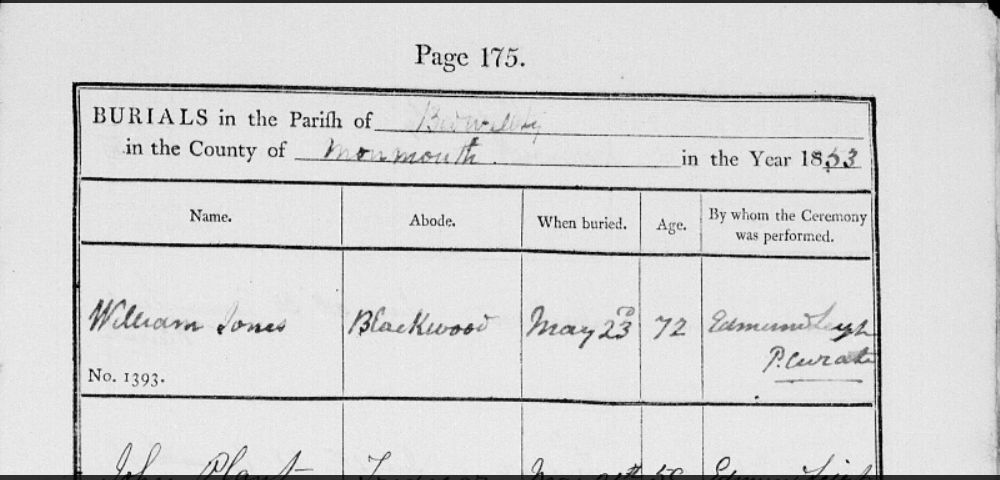 Page 175.
BURIALS in the Parish of Bedwellty
in the County of Monmouth in the Year 1853
Name. Abode. When buried. Age. By whom the Ceremony was performed.
William Jones Blackwood May 23d 72 Edmund Leigh
P. Curate
No. 1393.
John Plant Edmund Leigh